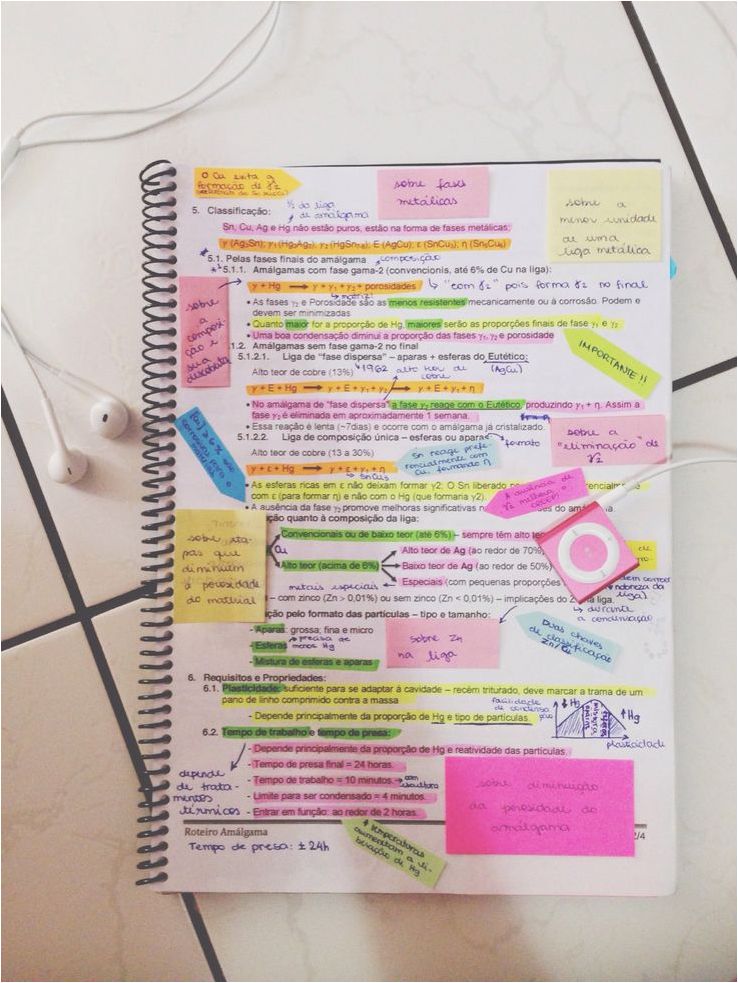 O Cu evita a
formação de γ2
sobre fases
metálicas
sobre a
menor unidade
de uma
liga metálica
½ da liga
de amálgama
5. Classificação:
Sn, Cu, Ag e Hg não estão puros, estão na forma de fases metálicas:
γ (Ag3Sn); γ1 (Hg3Ag2); γ2 (HgSn7-8); E (AgCu); ε (SnCu3); η (Sn5Cu6)
5.1. Pelas fases finais do amálgama
composição
5.1.1. Amálgamas com fase gama-2 (convencionis, até 6% de Cu na liga):
γ + Hg → γ + γ1 + γ2 + porosidades
"com γ2" pois forma γ2 no final
matriz
sobre
a
composi-
ção e
sua
• As fases γ2 e Porosidade são as menos resistentes mecanicamente ou à corrosão. Podem e
devem ser minimizadas
• Quanto maior for a proporção de Hg, maiores serão as proporções finais de fase γ1 e γ2
• Uma boa condensação diminui a proporção das fases γ1, γ2 e porosidade
1.2. Amálgamas sem fase gama-2 no final
IMPORTANTE!!
5.1.2.1. Liga de "fase dispersa" – aparas + esferas do Eutético:
Alto teor de cobre (13%)
1962
alto teor de
cobre
(AgCu)
γ + E + Hg → γ + E + γ1 + γ2 → γ + E + γ1 + η
• No amálgama de "fase dispersa" a fase γ2 reage com o Eutético, produzindo γ1 + η. Assim a
fase γ2 é eliminada em aproximadamente 1 semana.
• Essa reação é lenta (~7dias) e ocorre com o amálgama já cristalizado.
5.1.2.2. Liga de composição única – esferas ou aparas
formato
sobre a
"eliminação" de
γ2
Alto teor de cobre (13 a 30%)
Sn reage prefe-
rencialmente com
Cu, formando η
γ + ε + Hg → γ + ε + γ1 + η
SnCu3
A ausência de
γ2 melhora o
• As esferas ricas em ε não deixam formar γ2: O Sn liberado
com ε (para formar η) e não com o Hg (que formaria γ2).
• A ausência da fase γ2 promove melhoras significativas
ção quanto à composição da liga:
sobre eta-
pas que
diminuem
a porosidade
do material
Cu
Convencionais ou de baixo teor (até 6%) – sempre têm alto
Alto teor de Ag (ao redor de 70%)
Alto (acima de 6%)
Baixo teor de Ag (ao redor de 50%)
Especiais (com pequenas proporções
metais especiais
nobreza da
liga)
– com zinco (Zn > 0,01%) ou sem zinco (Zn < 0,01%) – implicações do Z na liga.
durante
a condensação
ção pelo formato das partículas – tipo e tamanho:
sobre Zn
na liga
Duas chaves
de classificação
Zn/Cu
- Aparas: grossa; fina e micro
- Esferas
precisa de
menos Hg
- Mistura de esferas e aparas
6. Requisitos e Propriedades:
6.1. Plasticidade: suficiente para se adaptar à cavidade – recém triturado, deve marcar a trama de um
pano de linho comprimido contra a massa
facilidade
de condensa
ção
↓Hg
↑Hg
plasticidade
- Depende principalmente da proporção de Hg e tipo de partículas.
6.2. Tempo de trabalho e tempo de presa:
- Depende principalmente da proporção de Hg e reatividade das partículas.
depende
de trata-
mentos
térmicos
- Tempo de presa final = 24 horas.
- Tempo de trabalho = 10 minutos
com
escultura
- Limite para ser condensado = 4 minutos.
- Entrar em função: ao redor de 2 horas.
sobre diminuição
da porosidade do
amálgama
Roteiro Amálgama
2/4
Tempo de presa: ± 24h
↑ temperaturas
aumentam a li-
beração de Hg